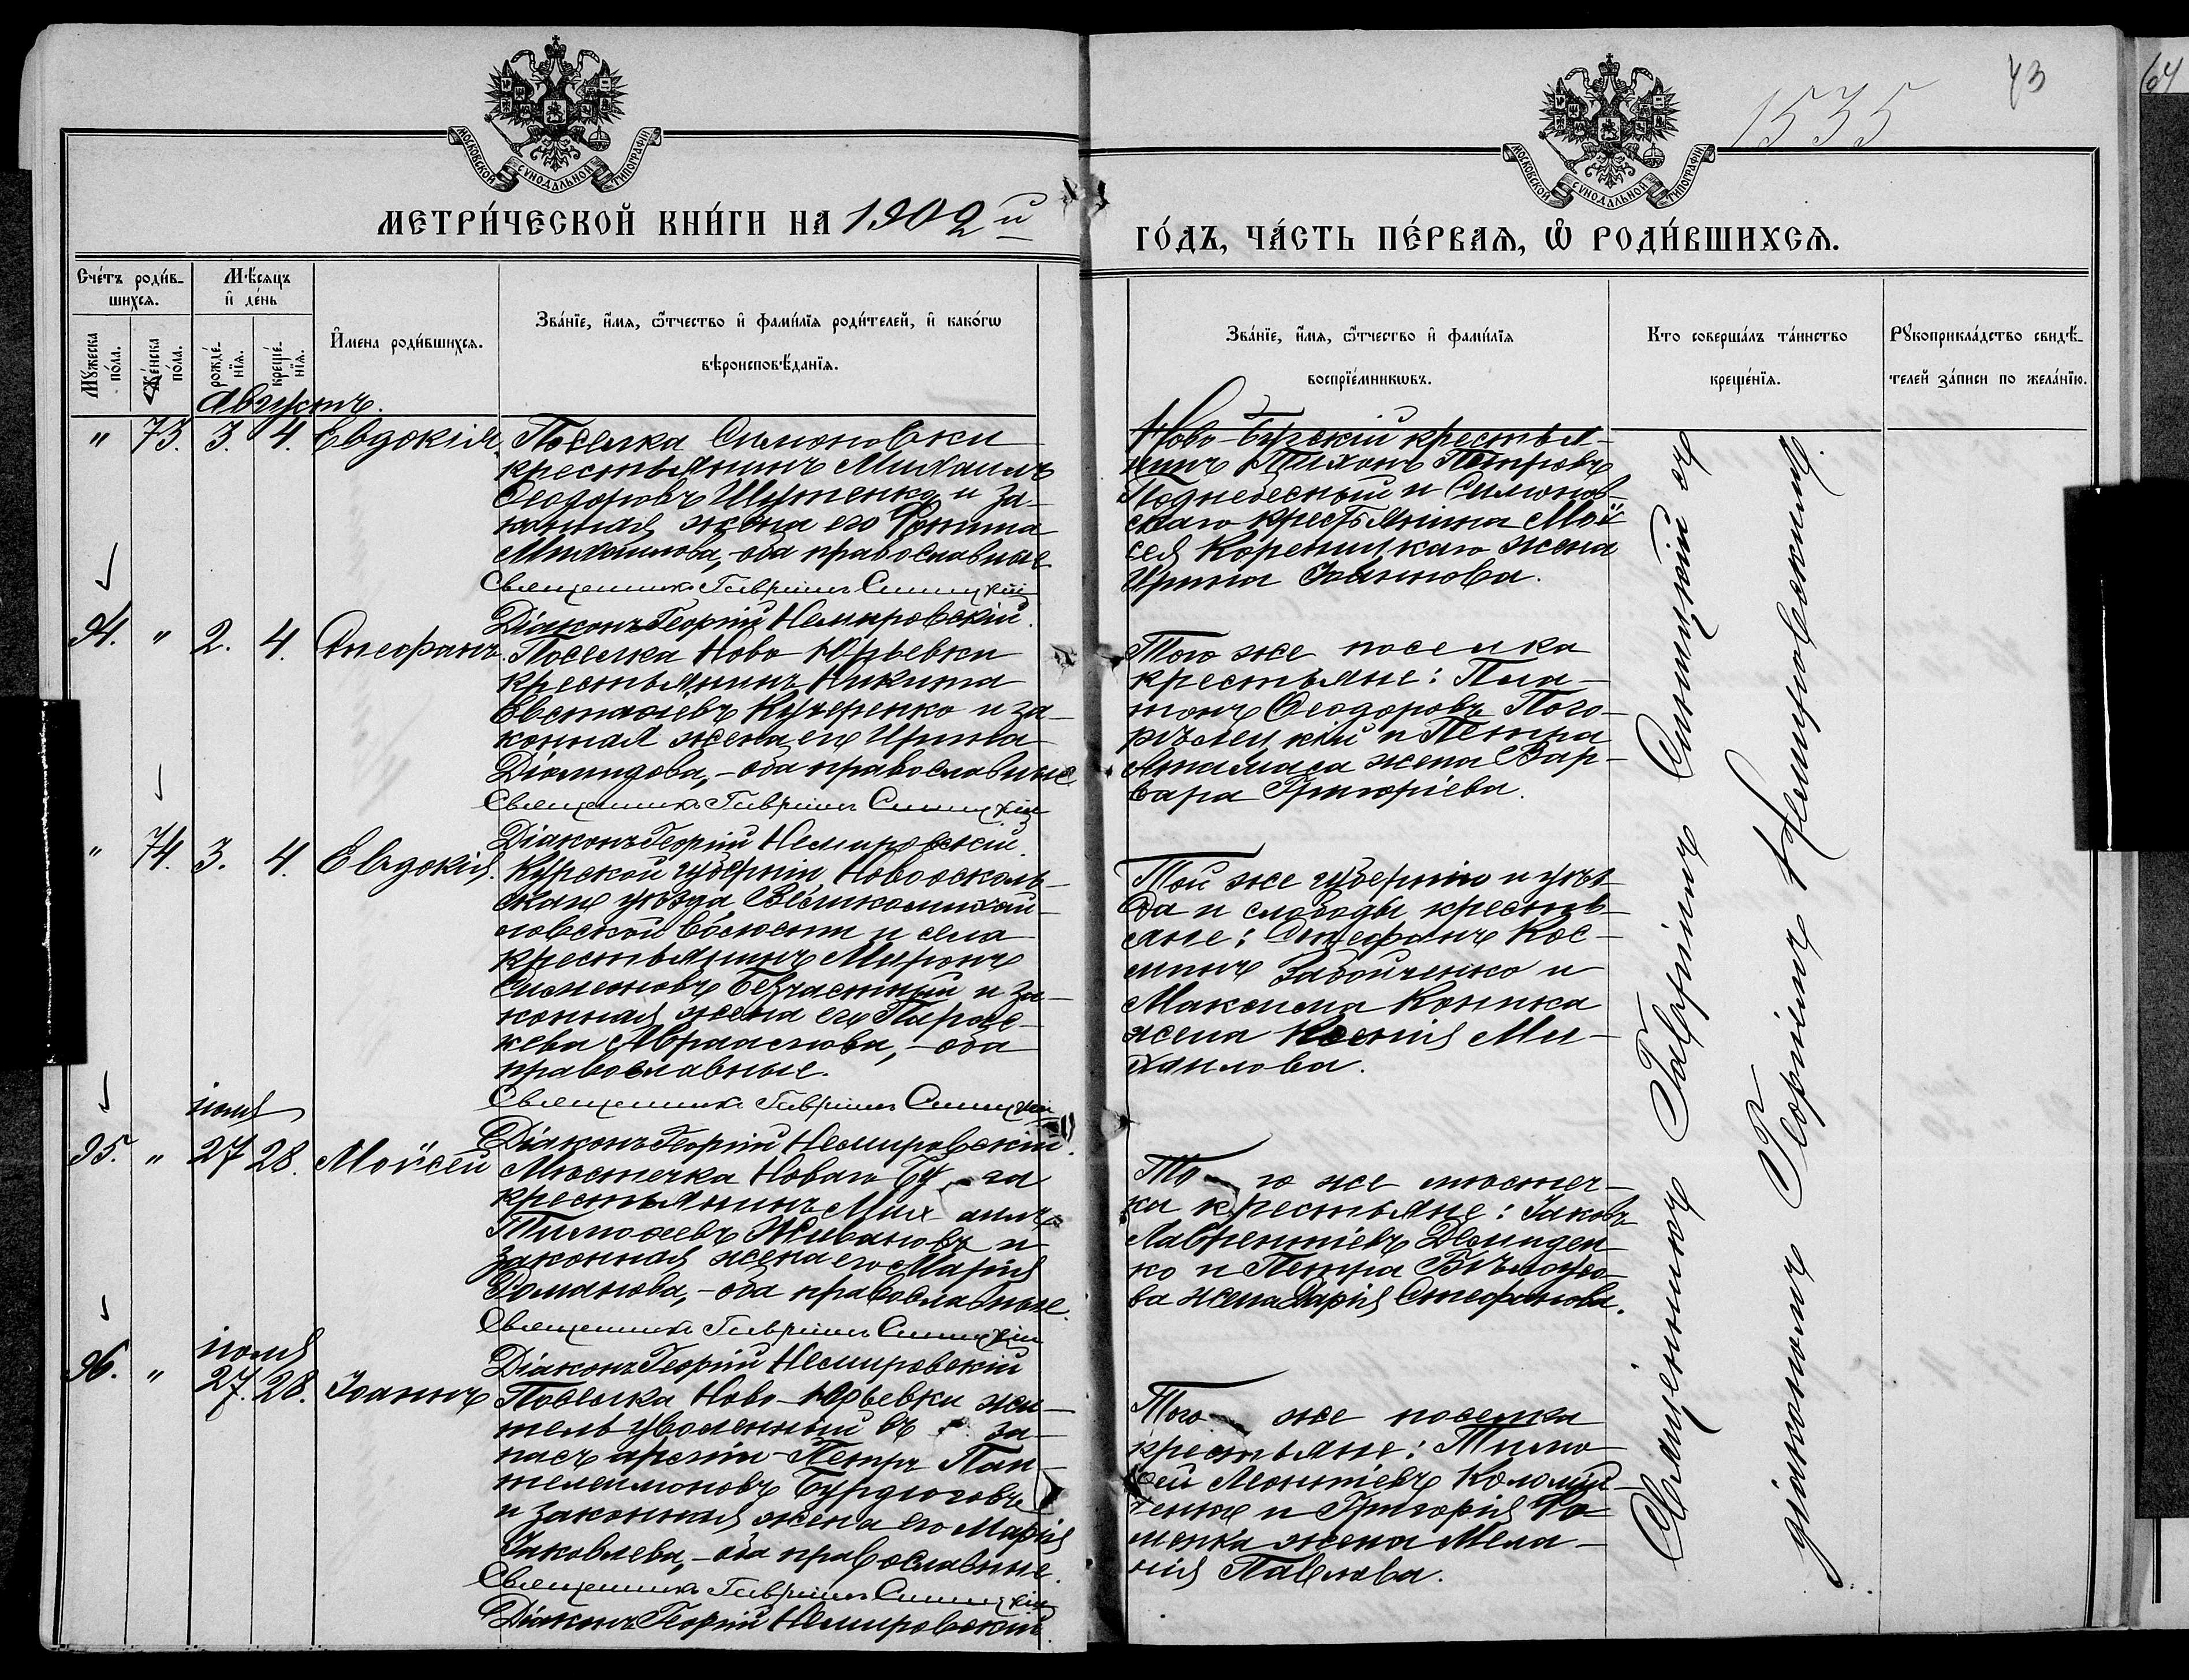 МОСКОВСКОЙ СѴНОДАЛЬНОЙ ТИПОГРАФІИ
МЕТРИ́ЧЕСКОЙ КНИ́ГИ НА 1902й
Сче́тъ роди́в-
шихсѧ.
Мꙋжеска
по́ла.
Же́нска
по́ла.
Мѣсѧцъ
и҆ де́нь
рожде́-
нїѧ.
креще́-
нїѧ.
И҆мена роди́вшихсѧ.
Зва́нїе, и҆́мѧ, ѻ҆́тчество и҆ фами́лїѧ роди́телей, и҆ како́гѡ
вѣроисповѣ́данїѧ.
Августъ.
" 73. 3. 4. Евдокія
Поселка Симоновки
крестьянинъ Михаилъ
Ѳеодоровъ Шутенко и за-
конная жена его Фотина
Михаилова, - оба православные
Священникъ Гавріилъ Синицкій
Діаконъ Георгій Немировскій.
94. " 2. 4. Стефанъ.
Поселка Ново Юрьевки
крестьянинъ Никита
Евстафіевъ Кучеренко и за-
конная жена его Ирина
Діомидова, - оба православные
Священникъ Гавріилъ Синицкій
Діаконъ Георгій Немировскій.
" 74. 3. 4. Евдокія.
Курской губерніи Новоосколь-
скаго уѣзда Великомихай-
ловской волости и села
крестьянинъ Миронъ
Симеоновъ Безчастный и за-
конная жена его Параске-
кева Авраамова, - оба
православные.
Священникъ Гавріилъ Синицкій
Діаконъ Георгій Немировскій.
іюля
95. " 27 28. Моѵсей
Мѣстечка Новаго Буга
крестьянинъ Михаилъ
Тимоѳеевъ Живановъ и
законная жена его Марія
Романова, - оба православные.
Священникъ Гавріилъ Синицкій
Діаконъ Георгій Немировскій
іюля
96. " 27. 28. Іоаннъ
Поселка Ново-Юрьевки жи-
тель уволенный въ за-
пасъ арміи Петръ Пан-
телеимоновъ Бурдюговъ
и законная жена его Марія
Іаковлева, - оба православные.
Священникъ Гавріилъ Синицкій
Діаконъ Георгій Немировскій.
1535
43
64
МОСКОВСКОЙ СѴНОДАЛЬНОЙ ТИПОГРАФІИ
ГО́ДЪ, ЧА́СТЬ ПЕ́РВАѦ, Ѡ҆ РОДИ́ВШИХСѦ.
Зва́нїе, и҆́мѧ, ѻ҆́тчество и҆ фами́лїѧ
воспрїе́мникѡвъ.
Кто соверша́лъ та́инство
креще́нїѧ.
Рꙋкоприкла́дство свидѣ́-
телей за́писи по жела́нїю.
Ново-Бугскій крестья-
нинъ Тихонъ Петровъ
Поднебесный и Симонов-
скаго крестьянина Моѵ
сея Кореницкаго жена
Ирина Іоаннова.
Того же поселка
крестьяне: Пла-
тонъ Ѳеодоровъ Пого-
рѣлецкій и Петра
жена Вар-
вара Григоріева.
Той же губерніи и уѣз-
да и слободы крестья-
яне: Стефанъ Кос-
минъ Забойченко и
Максима Коника
жена Ксенія Ми-
хаилова.
Того же мѣстеч-
ка крестьяне: Іаковъ
Лаврентіевъ Демиден-
ко и Петра Бѣлоусо-
ва жена Дарія Стефанова.
Того же поселка
крестьяне: Тимо-
ѳей Леонтіевъ Коломій-
ченко и Григорія Ѳо-
менка жена Мела-
нія Павлова.
Священникъ Гавріилъ Синицкій съ
діакономъ Георгіемъ Немировскимъ.